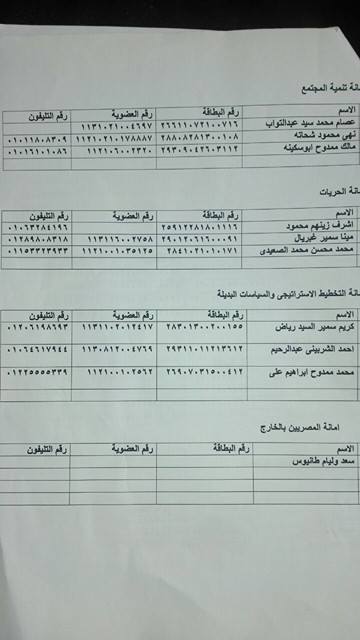 انة تنمية المجتمع
الاسم رقم البطاقة رقم العضوية رقم التليفون
عصام محمد سيد عبدالتواب ٢٦٦١١٠٧٢١٠٠٧١٦ ١١٣١٠٢١٠٠٤٦٩٧
نهى محمود شحاته ٢٨٨٠٨٢٨١٣٠٠١٠٨ ١١٢١٠٢١٠١٧٨٨٨٧ ٠١٠١١٨٠٨٣٠٩
مالك ممدوح ابوسكينه ٢٩٣٠٩٠٤٢٦٠٣١١٢ ١١٢١٠٦٠٠٢٣٢٠ ٠١٠١٦١٠١٠٨٦
انة الحريات
الاسم رقم البطاقة رقم العضوية رقم التليفون
اشرف زينهم محمود ٢٥٩١٢٢٨١٨٠١١١٦ ٠١٠٦٣٢٨٤١٩٦
مينا سمير غبريال ٢٩٠١٢٠٦١٦٠٠٠٩١ ١١٣١١٦٠٠٢٧٥٨ ٠١٢٨٩٨٠٨٣١٨
محمد محسن محمد الصعيدى ٢٨٤١٠٢١٠١٠١٧١ ١١٢١٠٠١٠٣٥١٢٥ ٠١١٥٣٣٢٣٩٣٣
انة التخطيط الاستراتيجى والسياسات البديلة
الاسم رقم البطاقة رقم العضوية رقم التليفون
كريم سمير السيد رياض ٢٨٣٠١٣٠٠٢٠٠١٥٥ ١١٣١١٠٢٠١٢٤١٧ ٠١٢٠٦١٩٨٦٩٣
احمد الشربينى عبدالرحيم ٢٩٣١١٠١١٢١٣٦١٢ ١١٣٠٨١٢٠٠٤٧٦٩ ٠١٠٦٤٦١٧٩٤٤
محمد ممدوح ابراهيم على ٢٦٩٠٧٠٣١٥٠٠٤١٢ ١١٢١٠٠١٠٢٥٦٢ ٠١٢٢٥٥٥٥٣٣٩
امانة المصريين بالخارج
الاسم رقم البطاقة رقم العضوية رقم التليفون
سعد وليام طانيوس